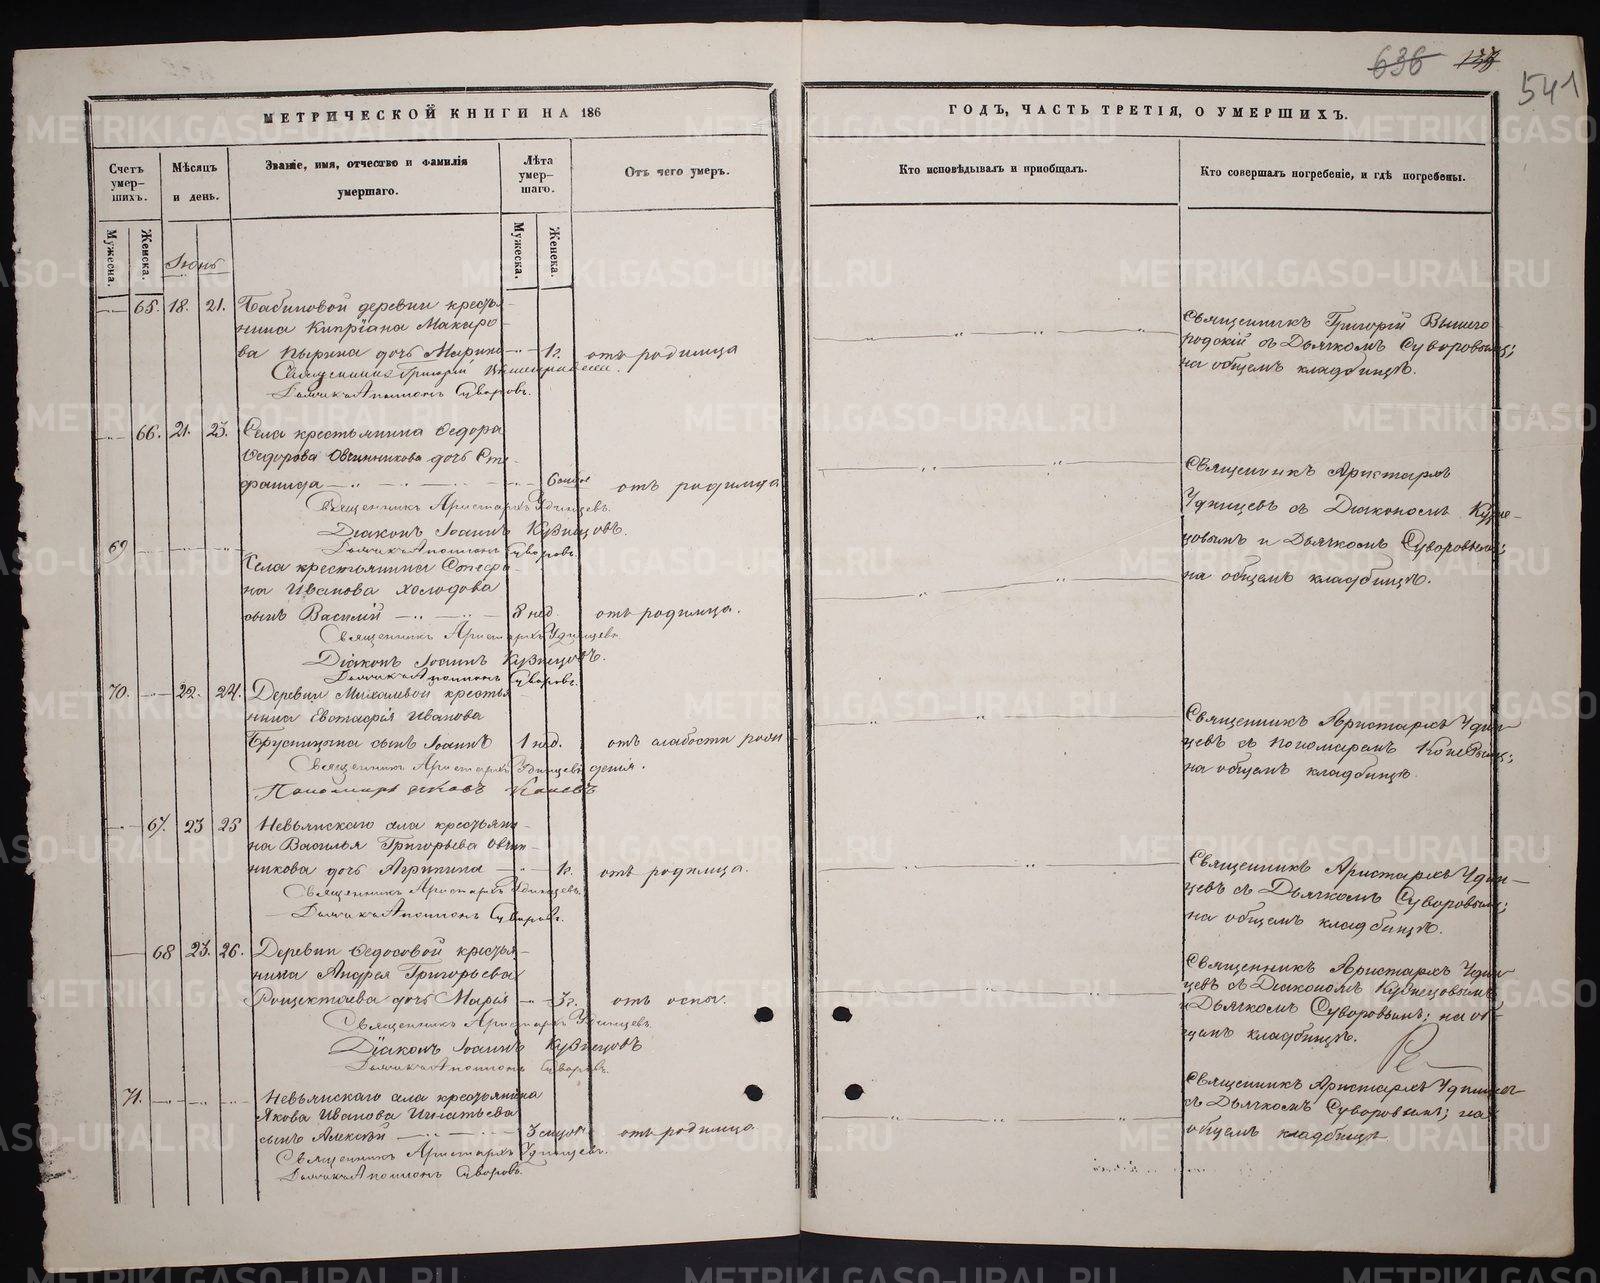 636 138
541
МЕТРИЧЕСКОЙ КНИГИ НА 186
ГОДЪ, ЧАСТЬ ТРЕТІЯ, О УМЕРШИХЪ.
Счетъ умер-шихъ.
Мѣсяцъ и день.
Званіе, имя, отчество и фамилія умершаго.
Лѣта умер-шаго.
Отъ чего умеръ.
Кто исповѣдывалъ и пріобщалъ.
Кто совершалъ погребеніе, и гдѣ погребены.
Мужеска.
Женска.
Іюнь
Мужеска.
Женска.
65. 18. 21. Бабиновой деревни крестья-
нина Кипріана Макаро-
ва Пырина дочь Марина 1 г. отъ родимца
Священникъ Григорій Вышегородскій.
Дьячикъ Аполлонъ Суворовъ.
Священникъ Григорій Вышего-
родскій съ Дьячкомъ Суворовымъ;
на общемъ кладбищѣ.
66. 21. 23. Села крестьянина Ѳедора
Ѳедорова Овчинникова дочь Сте-
фанида 6 отъ родимца
Священникъ Аристархъ Удинцевъ.
Діаконъ Іоаннъ Кузнецовъ.
Дьячикъ Аполлонъ Суворовъ.
Священникъ Аристархъ
Удинцевъ съ Діакономъ Кузне-
цовымъ и Дьячкомъ Суворовымъ;
на общемъ кладбищѣ.
69
Села крестьянина Стефа-
на Иванова Холодова
сынъ Василій 8 нед. отъ родимца.
Священникъ Аристархъ Удинцевъ
Діаконъ Іоаннъ Кузнецовъ.
Дьячикъ Аполлонъ Суворовъ.
70. 22. 24. Деревни Михалевой крестья-
нина Евстафія Иванова
Брусницына сынъ Іоаннъ 1 нед. отъ слабости рожденія.
Священникъ Аристархъ Удинцевъ
Пономарь Яковъ Коневъ
Священникъ Аристархъ Удин-
цевъ съ Пономаремъ Коневымъ;
на общемъ кладбищѣ
67. 23 25 Невьянскаго села крестьяни-
на Василья Григорьева Овчин-
никова дочь Агрипина 1 г. отъ родимца.
Священникъ Аристархъ Удинцевъ.
Дьячикъ Аполлонъ Суворовъ.
Священникъ Аристархъ Удин-
цевъ съ Дьячкомъ Суворовымъ;
на общемъ кладбищѣ.
68 23. 26. Деревни Ѳедосовой крестья-
нина Андрея Григорьева
Рощектаева дочь Марія 3 г. отъ оспы.
Священникъ Аристархъ Удинцевъ.
Діаконъ Іоаннъ Кузнецовъ
Дьячикъ Аполлонъ Суворовъ.
Священникъ Аристархъ Удин-
цевъ съ Діакономъ Кузнецовымъ
и Дьячкомъ Суворовымъ; на об-
щемъ кладбищѣ.
71. Невьянскаго села крестьянина
Якова Иванова Игнатьева
сынъ Алексѣй 3 отъ родимца
Священникъ Аристархъ Удинцевъ.
Дьячикъ Аполлонъ Суворовъ.
Священникъ Аристархъ Удинцевъ
съ Дьячкомъ Суворовымъ; на
общемъ кладбищѣ
METRIKI.GASO-URAL.RU